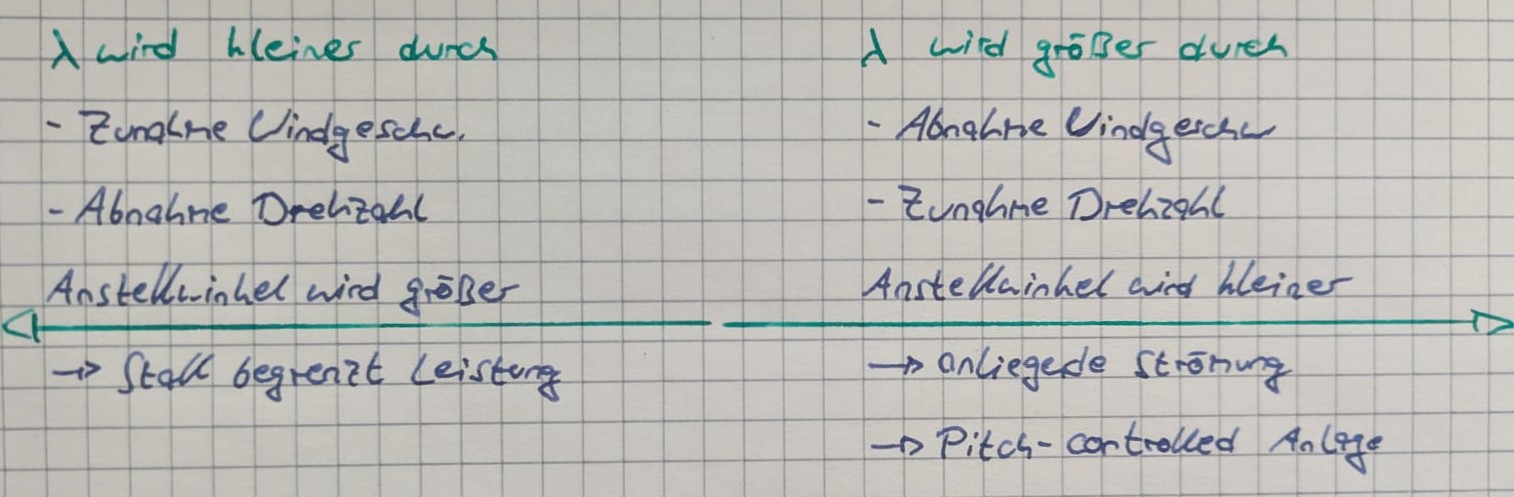 λ wird kleiner durch
- Zunahme Windgeschw.
- Abnahme Drehzahl
Anstellwinkel wird größer
→ Stall begrenzt Leistung
λ wird größer durch
- Abnahme Windgeschw
- Zunahme Drehzahl
Anstellwinkel wird kleiner
→ anliegede Strömung
→ Pitch-controlled Anlage